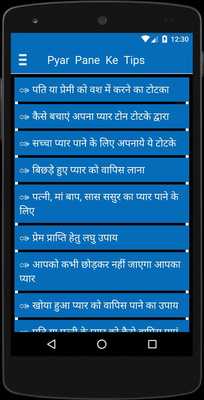 12:30
Pyar Pane Ke Tips
पति या प्रेमी को वश में करने का टोटका
कैसे बचाएं अपना प्यार टोन टोटके द्वारा
सच्चा प्यार पाने के लिए अपनाये ये टोटके
बिछड़े हुए प्यार को वापिस लाना
पत्नी, मां बाप, सास ससुर का प्यार पाने के
लिए
प्रेम प्राप्ति हेतु लघु उपाय
आपको कभी छोड़कर नहीं जाएगा आपका
प्यार
खोया हुआ प्यार को वापिस पाने का उपाय